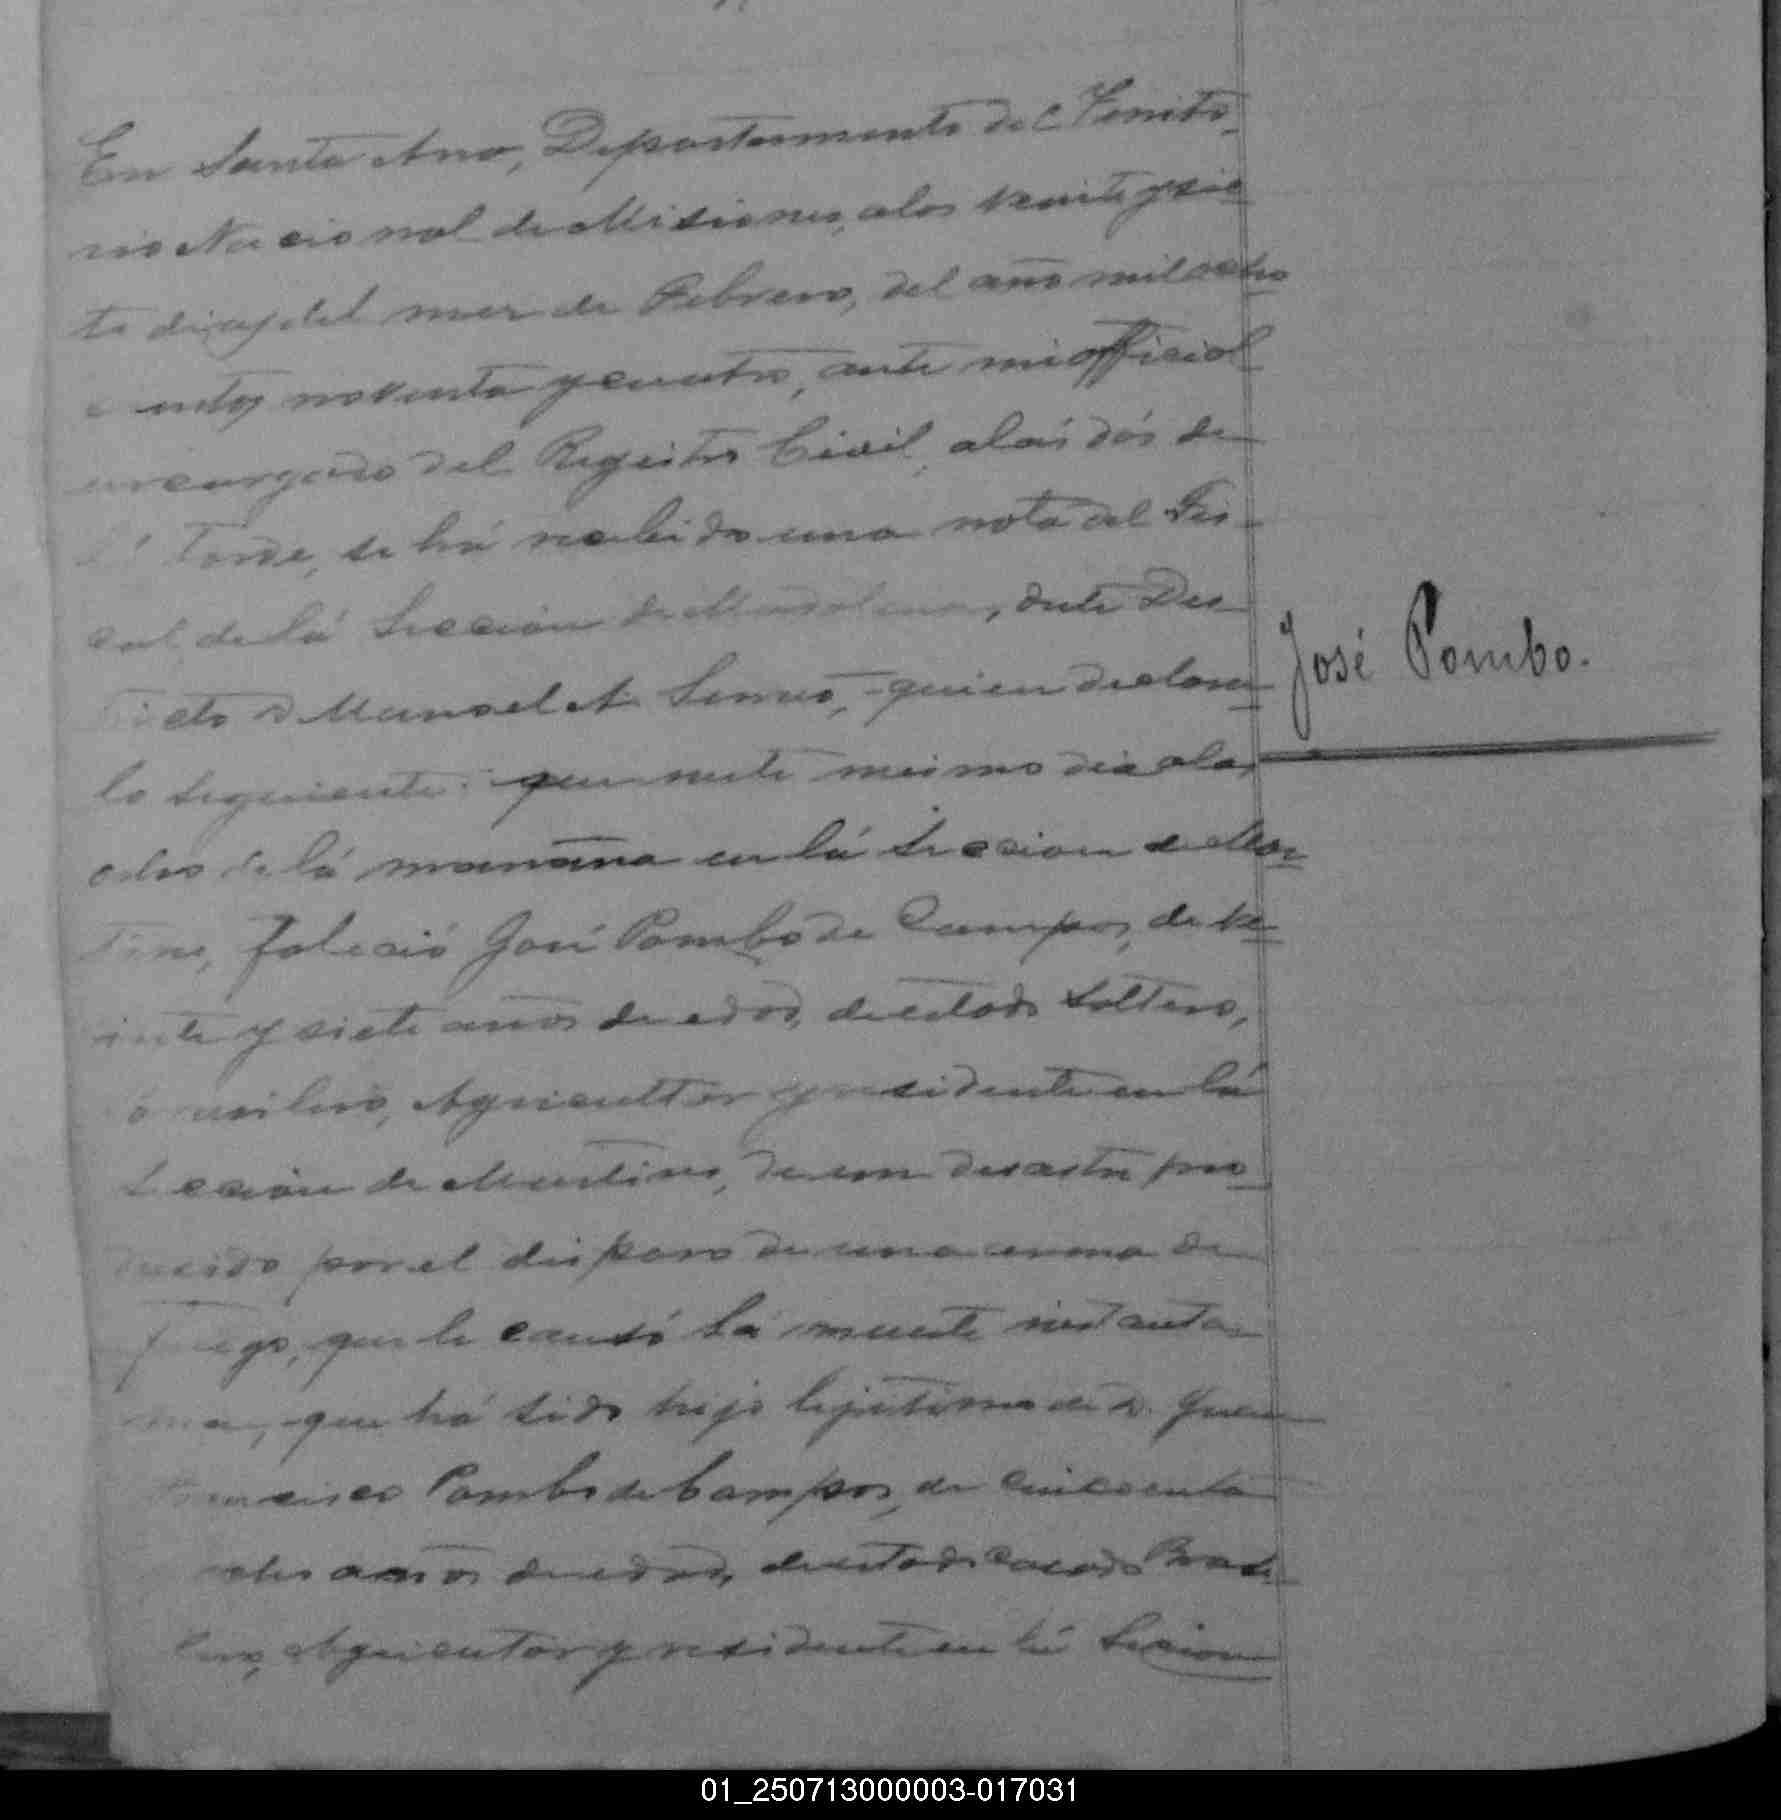 En Santa Ana, Departamento del Territo-
rio Nacional de Misiones, a los veinte y sie
te dias del mes de Febrero, del año mil ocho
cientos noventa y cuatro, ante mi official
encargado del Registro Civil, a lás dós de
lá tarde, se há recebido una nota del Fis-
cal de lá Seccion de, deste Dis-
tricto D Manoel A, quien declara
lo seguiente: que neste meismo dia alas
ocho de lá manãna en lá Seccion de Mar
tires, faleció José Pombo de Campos, de ve
inte y siete anos de edad, de estado Soltero,
brasilero, Agricultor y residente en lá
Seccion de Martires, de un desastre pro
ducido por el disparo de una arma de
fuego, que le causó lá muerte instanta-
nea, que há sido hijo legitimo de D.
Francisco Pombo de Campos, de Cincoenta
ocho anos de edad, de estado casado Brasi-
lero, Agricutor y residente en lá Secion
José Pombo.
01_250713000003-017031